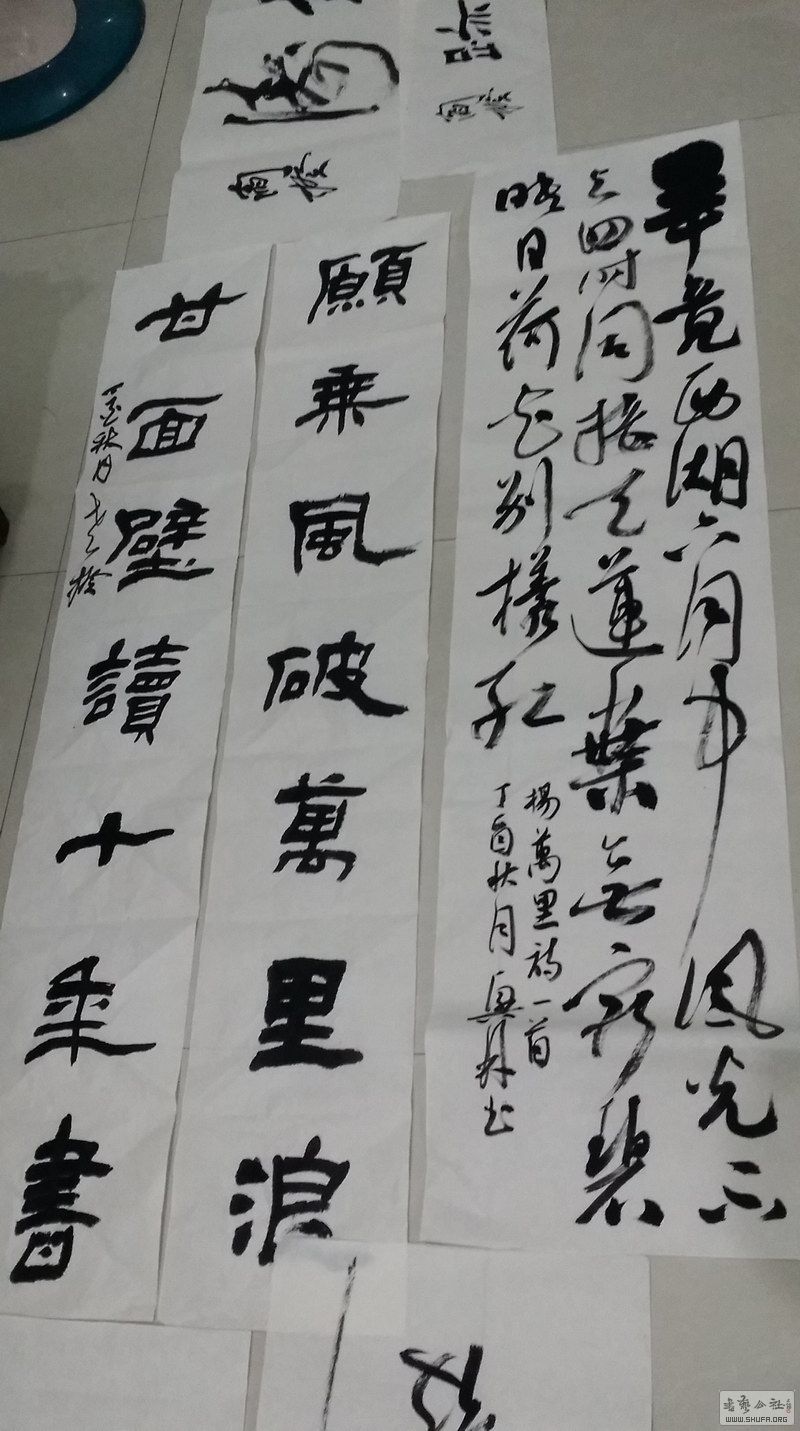 畢竟西湖六月中風光不
与四時同接天蓮葉無窮碧
映日荷花别樣紅
楊萬里詩一首
丁酉秋月
願乘風破萬里浪
甘面壁讀十秊書
丁酉秋月
書藝公社
WWW.SHUFA.ORG